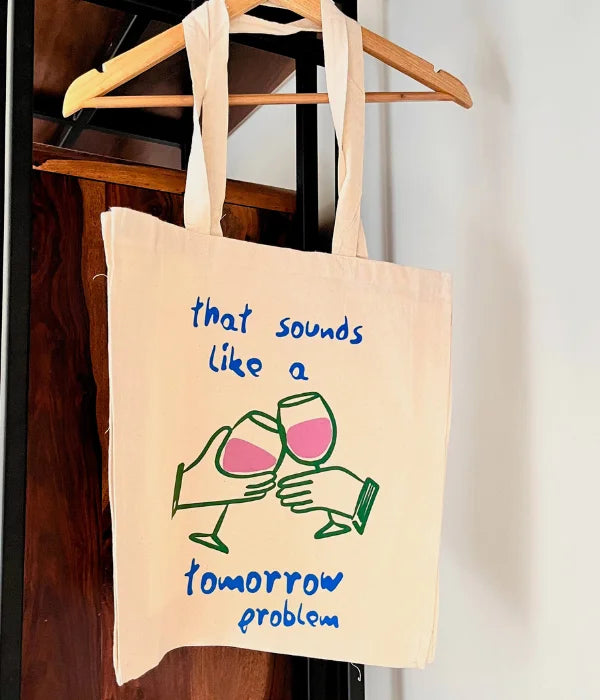 that sounds
like a
tomorrow
problem